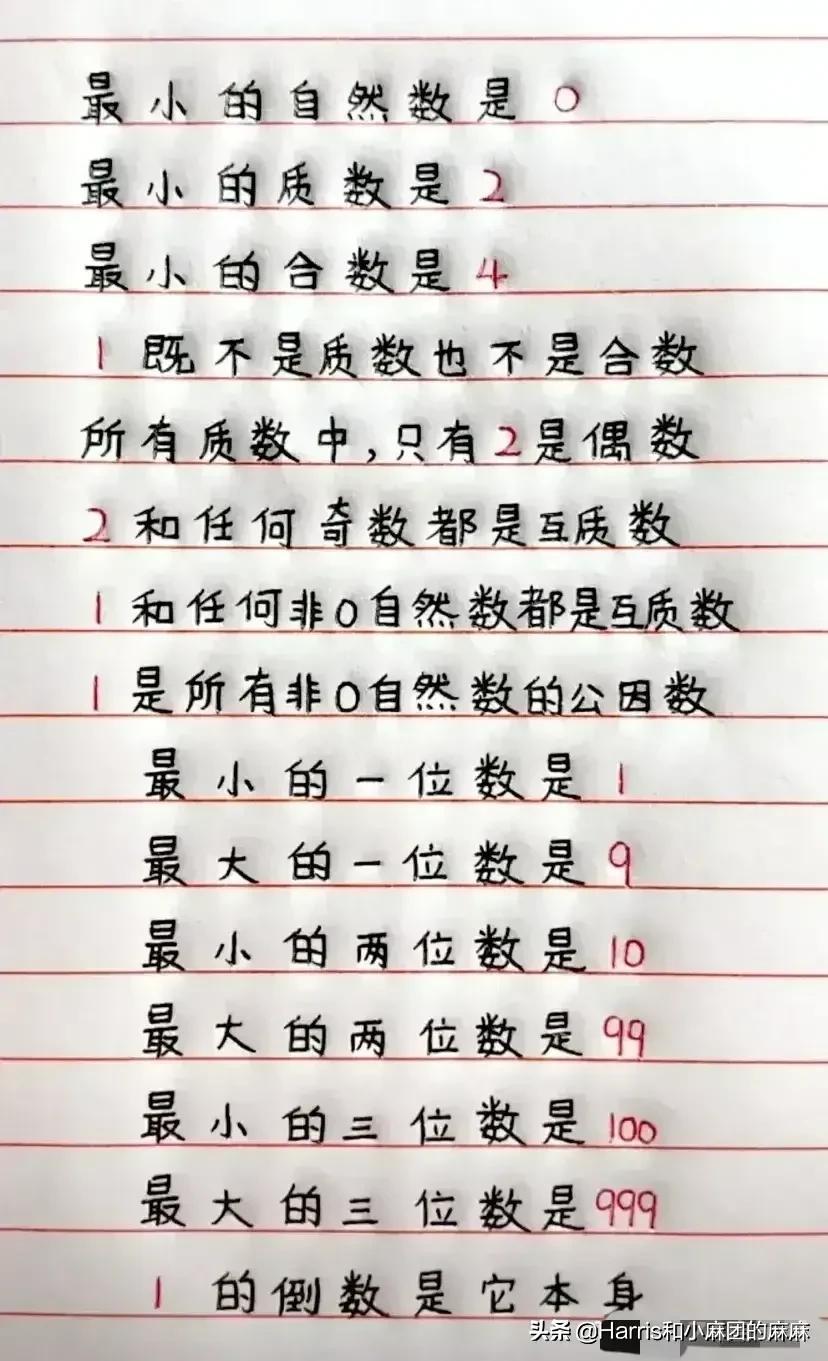 最小的自然数是0
最小的质数是2
最小的合数是4
1既不是质数也不是合数
所有质数中,只有2是偶数
2和任何奇数都是互质数
1和任何非0自然数都是互质数
1是所有非0自然数的公因数
最小的一位数是1
最大的一位数是9
最小的两位数是10
最大的两位数是99
最小的三位数是100
最大的三位数是999
1的倒数是它本身
头条 @Harris和小麻团的麻麻